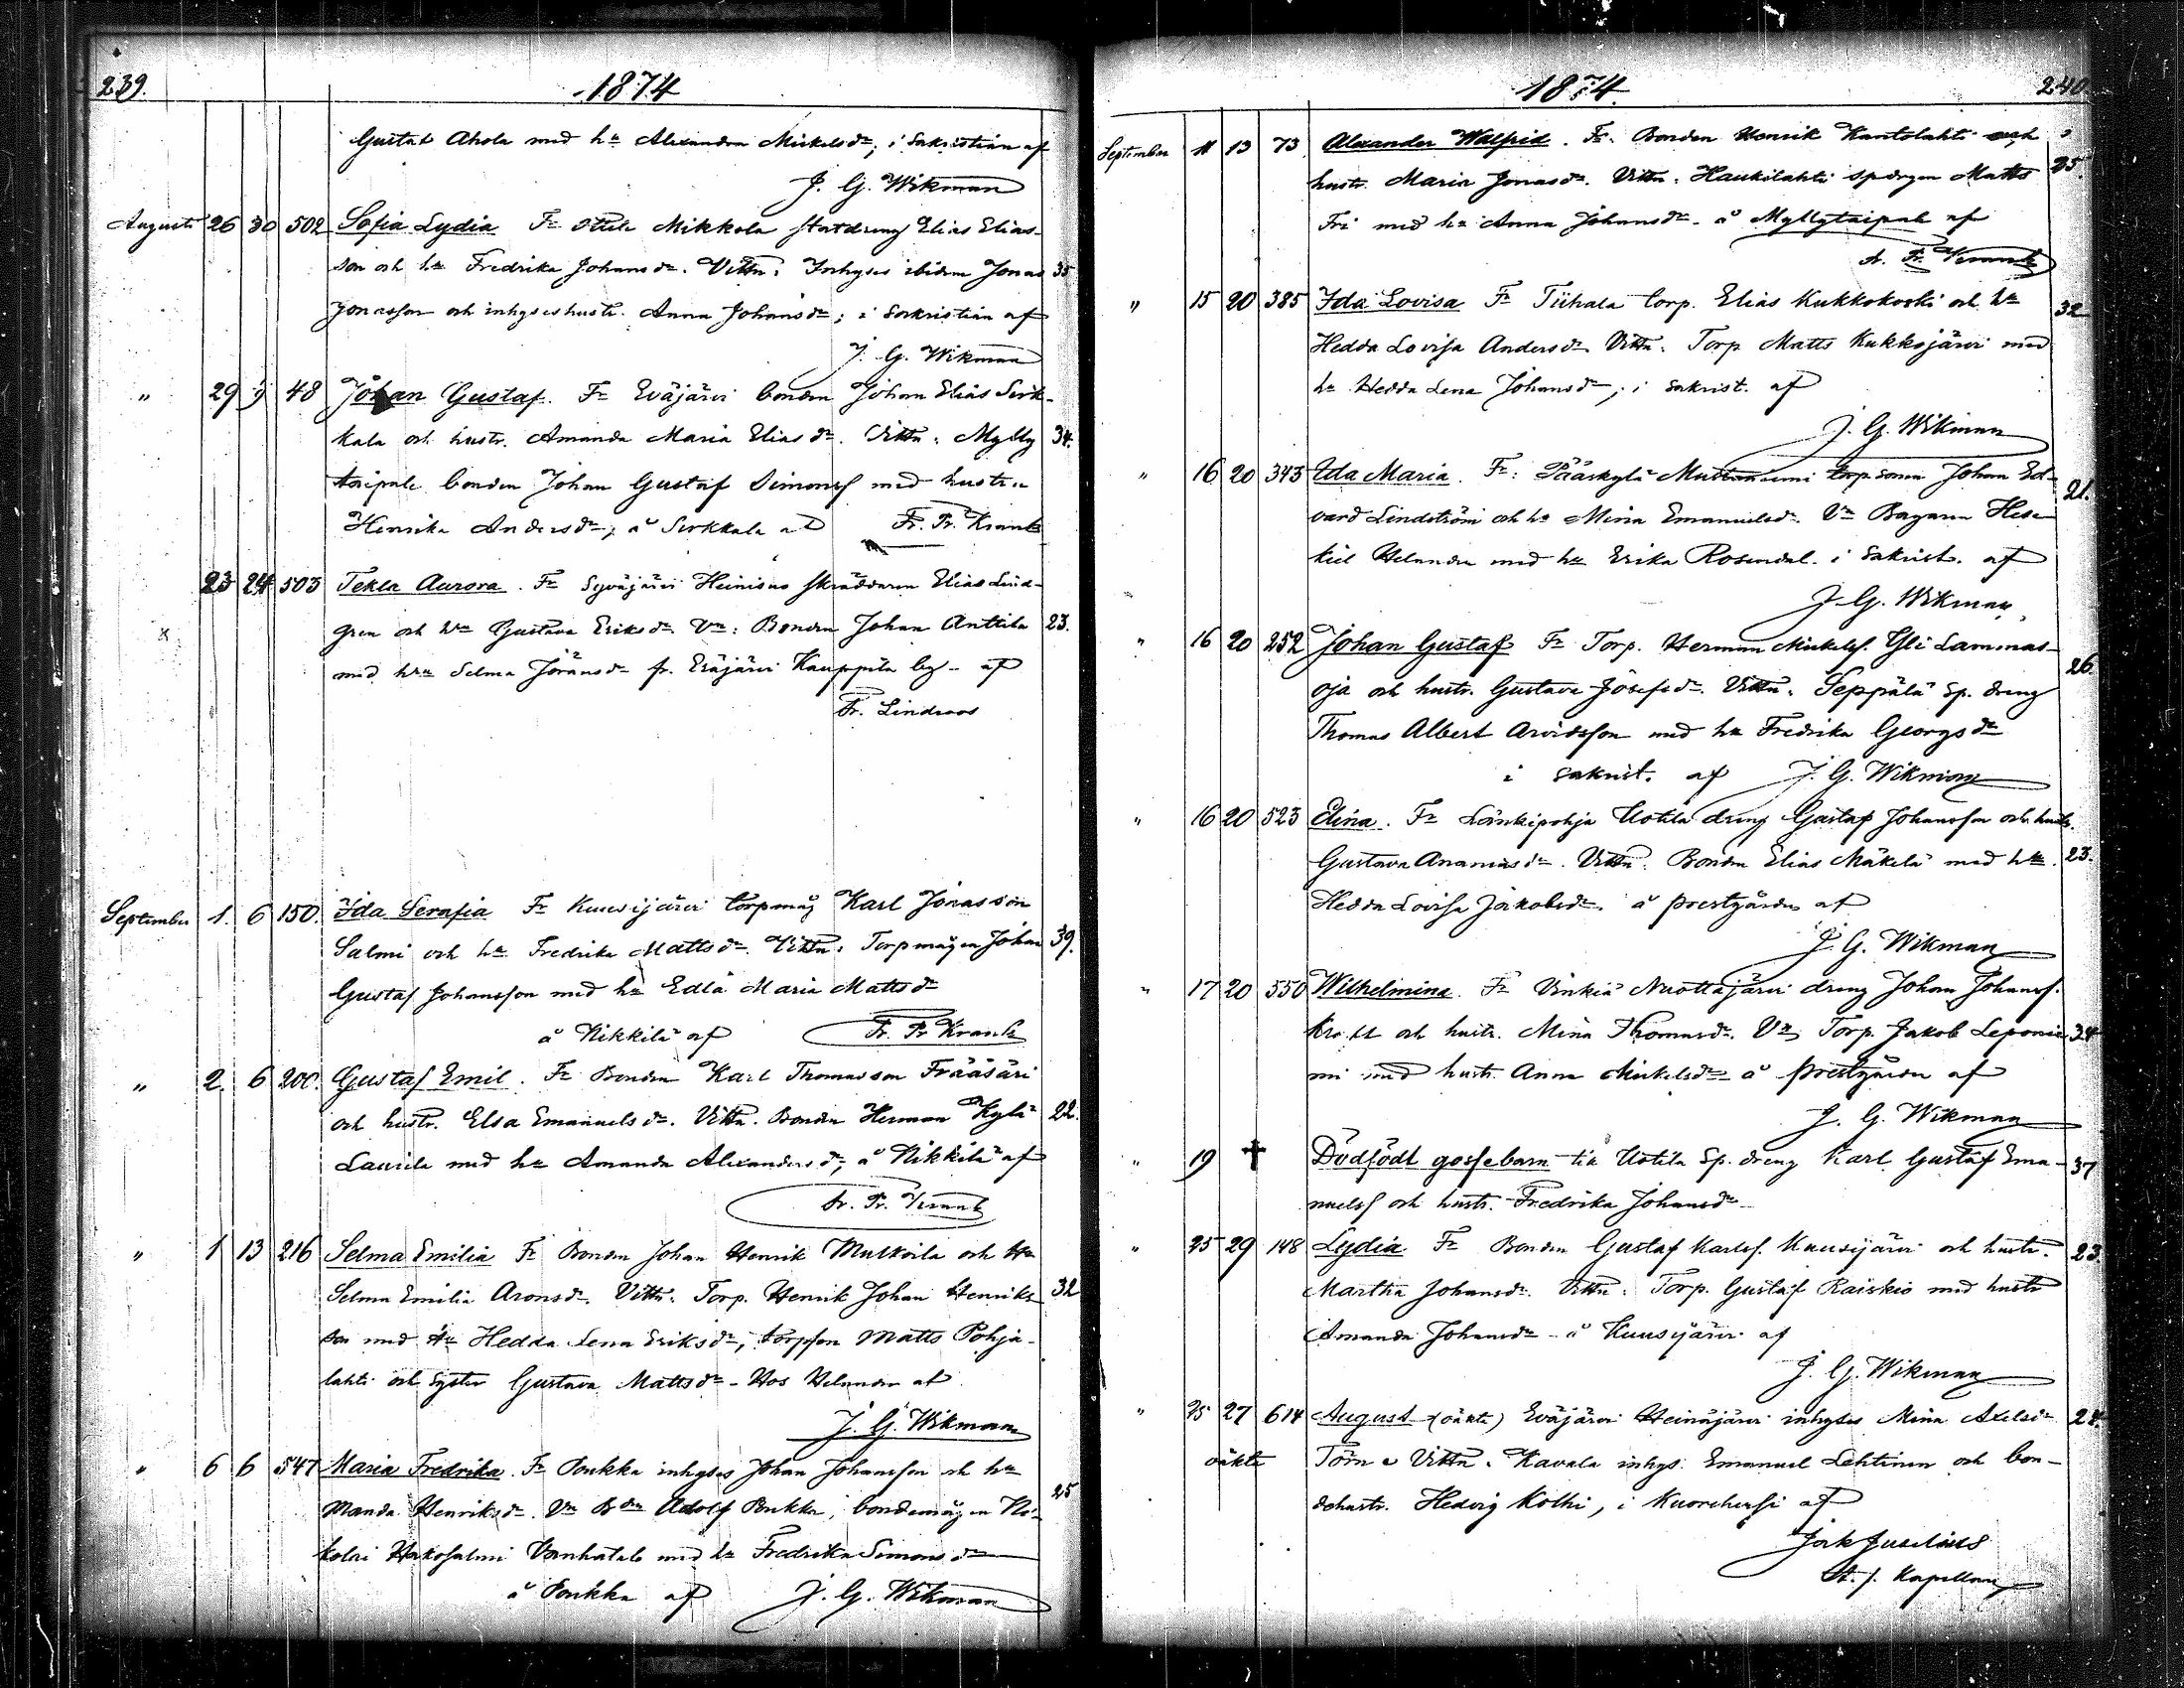 239.
1874
Gustaf Ahola med hu Alexandra Mickelsdr; i Sakristian af
J. G. Wikman
Augusti 26 30 502 Sofia Lydia Fr Mikkola statdreng Elias Elias-
son och hu Fredrika Johansdr. Vittn: Inhyses ibidem Jonas 35
Jonasson och inhyseshustr. Anna Johansdr; i Sakristian af
J. G. Wikman
" 29 48 Johan Gustaf. Fr Eväjärvi bonden Johan Elias Sirk-
kala och hustr. Amanda Maria Eliasdr. Vittn: Mylly 34.
taipale bonden Johan Gustaf Simonss med hustru
Henrika Andersdr; å Sirkkala af Fr. Fr. Krank
23 24 503 Tekla Aurora. Fr Syväjärvi Heinisuo skräddaren Elias Lind-
x gren och hru Gustava Eriksdr. Vn: Bonden Johan Anttila 23.
med hru Selma Jöransdr fr. Eräjärvi Kauppila by - af
Fr. Lindroos
September 1. 6 150. Ida Serafia Fr Kuusijärvi torpmåg Karl Jonasson
Salmi och hu Fredrika Mattsdr. Vittn: Torpmågen Johan 39.
Gustaf Johansson med hu Edla Maria Mattsdr
å Nikkilä af Fr. Fr Krank
" 2. 6 200. Gustaf Emil. Fr Bonden Karl Thomasson Frääsäri
och hustr. Elsa Emanuelsdr. Vittn. Bonden Herman Kylä 22.
Laurila med hu Amanda Alexandersdr; å Nikkilä af
Fr. Fr. Krank
" 1 13 216 Selma Emilia Fr Bonden Johan Henrik Mutkoila och Hu
Selma Emilia Aronsdr. Vittn: Torp. Henrik Johan Henriks 32
son med Hu Hedda Lena Eriksdr, torpson Matts Pohja-
lahti och syster Gustava Mattsdr - Hos Helander af
J. G. Wikman
" 6 6 547 Maria Fredrika. Fr Poukka inhyses Johan Johansson och hu
Manda Henriksdr. Vn Bdn Adolf Poukka, bondemågen Ni- 25
kolai Hakosalmi Vanhatalo med hu Fredrika Simonsdr
å Poukka af J. G. Wikman
1874.
240.
September 11 13 73 Alexander Walfrid. Fr. Bonden Henrik Kantolahti och
hustr. Maria Jonasdr. Vittn: Haukilahti spdrgen Matts 25.
Fri med hu Anna Johansdr - å Myllytaipale af
Fr. Fr. Krank
" 15 20 385 Ida Lovisa Fr Tiihala torp. Elias Kukkokoski och hu 32
Hedda Lovisa Andersdr. Vittn. Torp Matts Kukkojärvi med
hu Hedda Lena Johansdr; i sakrist. af
J. G. Wikman
" 16 20 343 Ida Maria. Fr: Pääskylä torpsonen Johan Ed-
vard Lindström och hu Mina Emanuelsdr. Vn Bagaren Hese- 21.
kiel Helander med hu Erika Rosendal. i Sakrist. af
J. G. Wikman
" 16 20 252 Johan Gustaf Fr Torp. Herman Mickelss. Yli Lammas-
oja och hustr. Gustava Josefsdr. Vittn: Seppälä Sp. dreng 26
Thomas Albert Arvidsson med hu Fredrika Georgsdr
i sakrist. af J. G. Wikman
" 16 20 523 Elina. Fr Länkipohja Uotila dreng Gustaf Johansson och hustr.
Gustava Ananiasdr. Vittn. Bonden Elias Mäkelä med hu. 23.
Hedda Lovisa Jakobsdr. å prestgården af
J. G. Wikman
" 17 20 550 Wilhelmina. Fr Vinkiä Nuottajärvi dreng Johan Johanss.
och hustr. Mina Thomasdr. Vn Torp. Jakob Leponie 34
mi med hustr. Anna Mickelsdr å prestgården af
J. G. Wikman
" 19 † Dödfödt gossebarn till Uotila Sp. dreng Karl Gustaf Ema- 37
nuelss och hustr. Fredrika Johansdr
" 25 29 148 Lydia Fr Bonden Gustaf Karlss. Kuusijärvi och hustr. 23.
Martha Johansdr. Vittn: Torp. Gustaf Raiskio med hustr
Amanda Johansdr - å Kuusijärvi af
J. G. Wikman
" 25 27 614 August (oäkta) Eväjärvi Heinäjärvi inhyses Mina Axelsdr 28.
oäkta Törn Vittn: Kavala inhys. Emanuel Lehtinen och bon-
dehustr. Hedvig Kolhi, i Kuorehvesi af
Jak Juselius
St. f. Kapellan